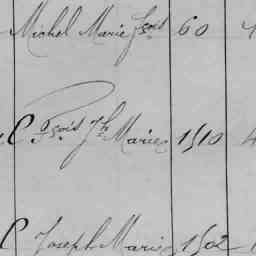 Michel Marie fsois 60 4
C fsois Jh Marie 1510 4
C Joseph Marie 1502